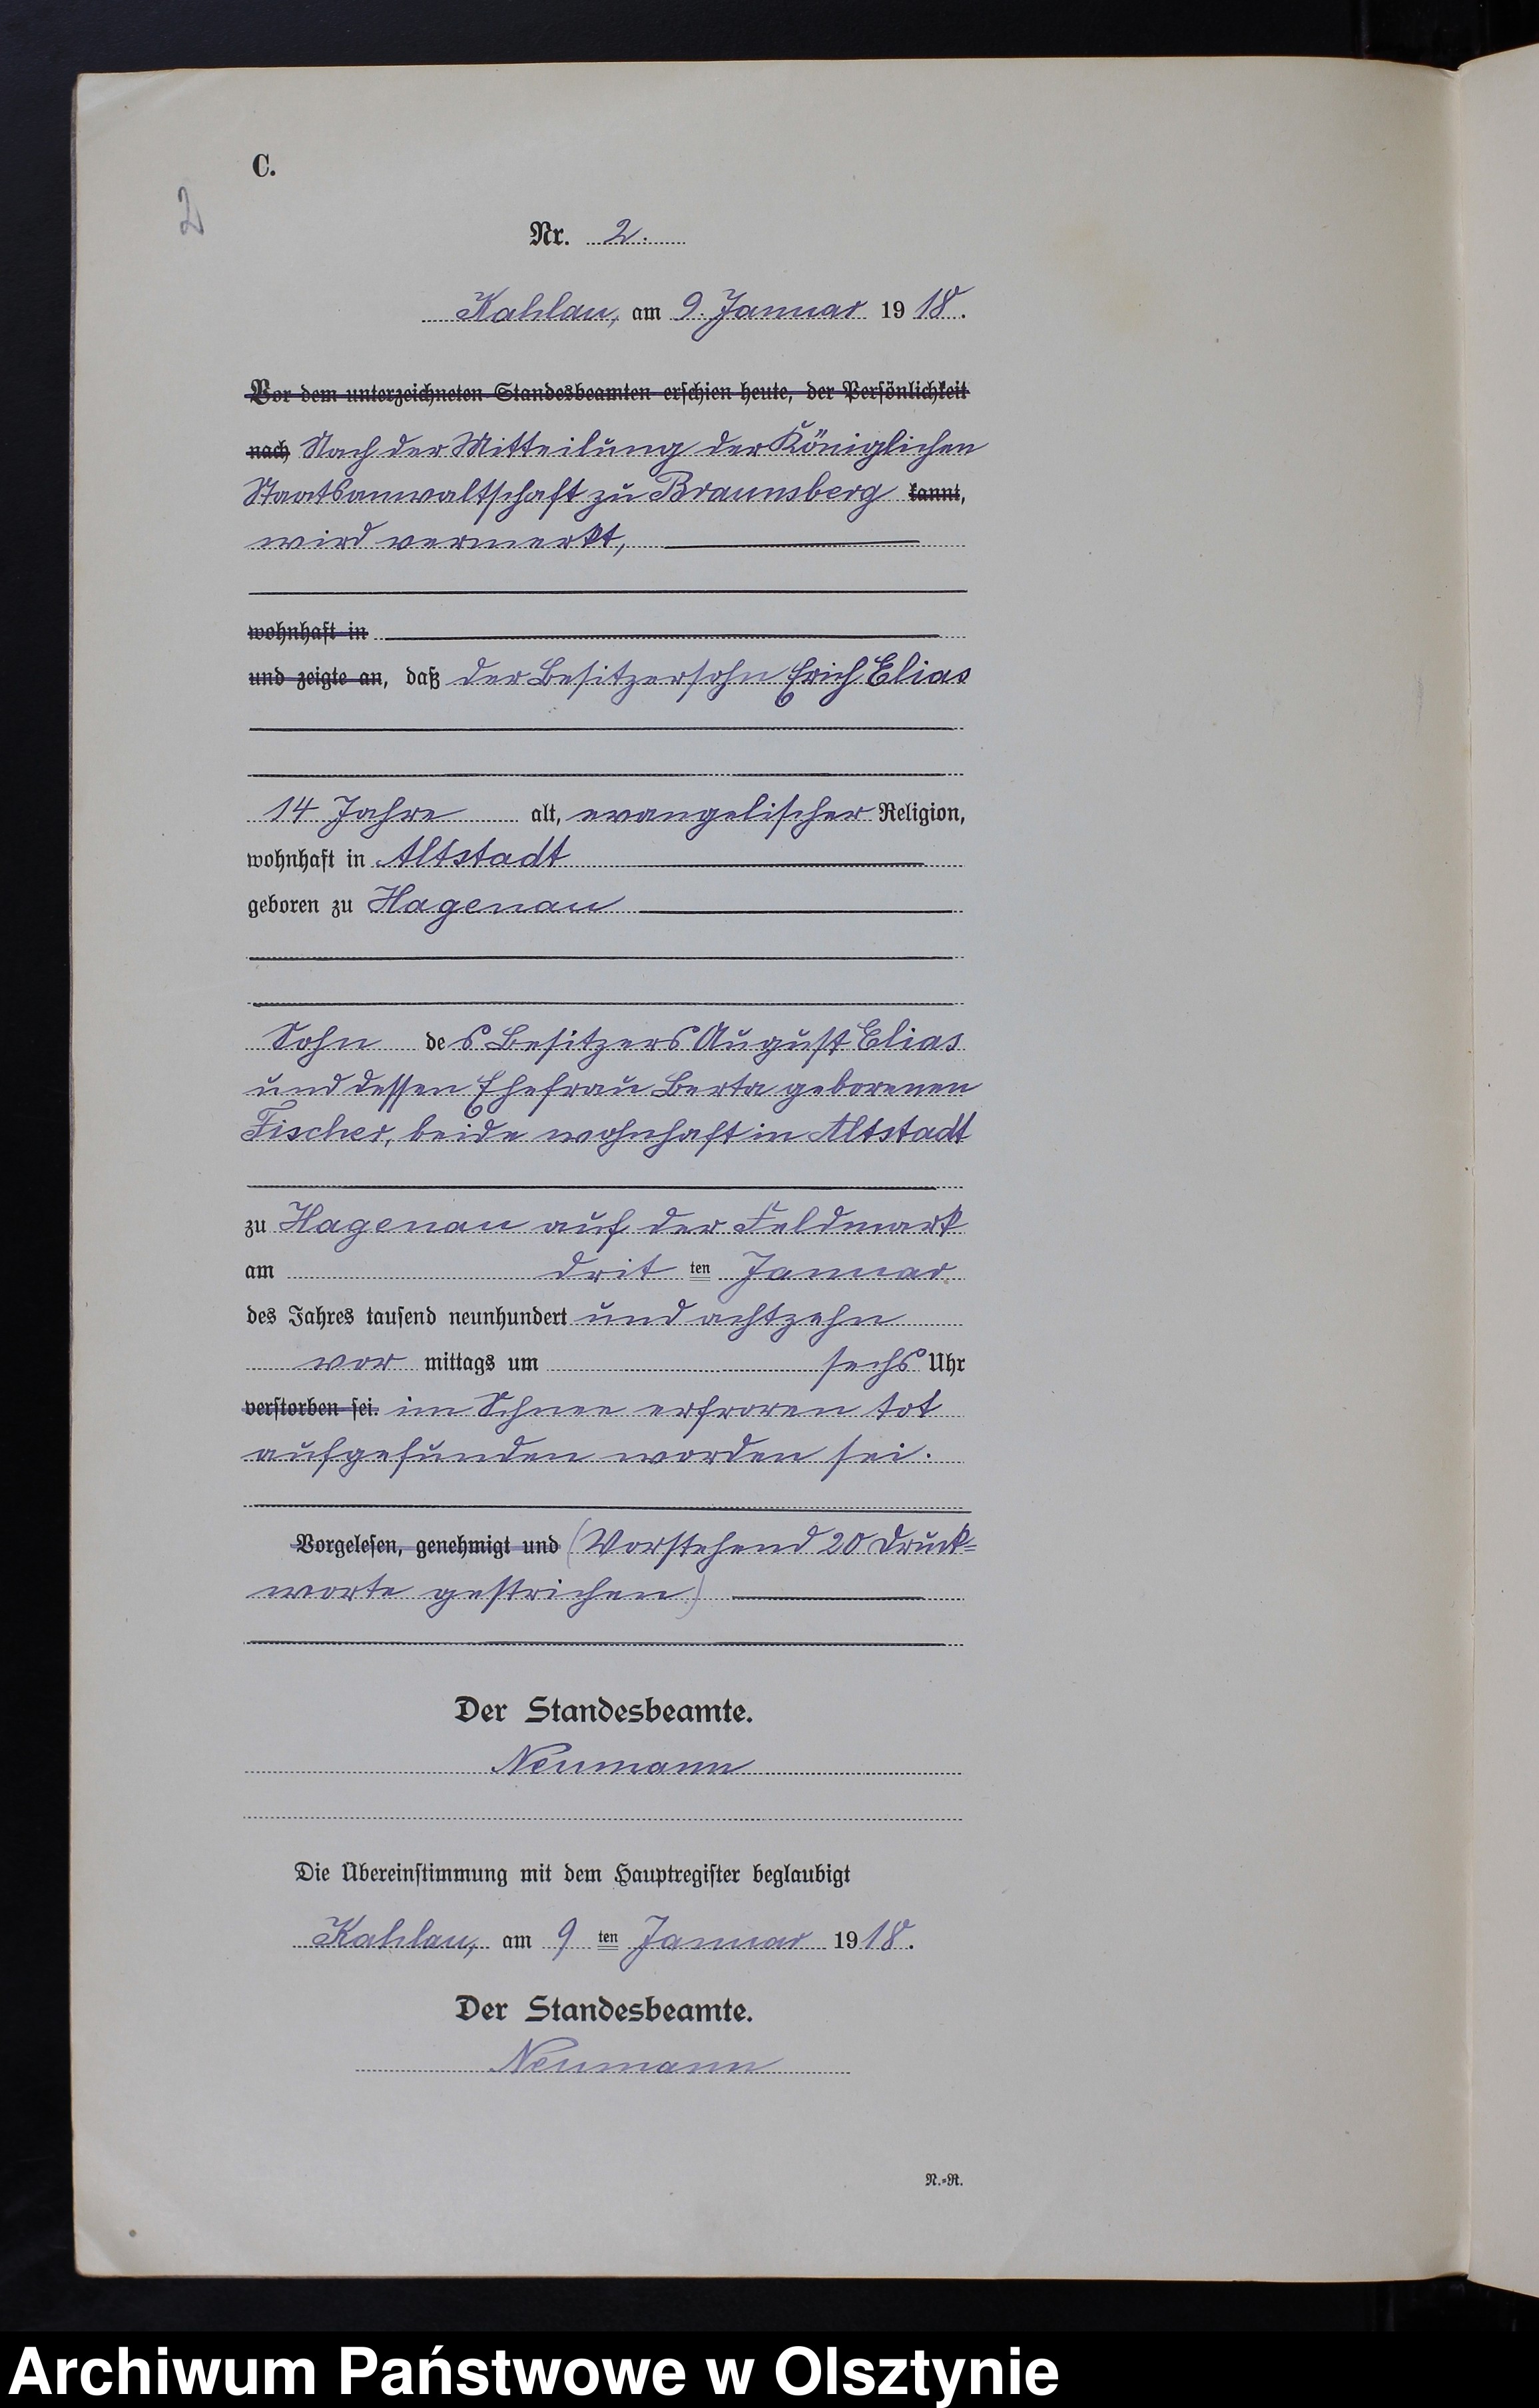 C.
2
Nr. 2.
Kahlau, am 9. Januar 1918.
Vor dem unterzeichneten Standesbeamten erschien heute, der Persönlichkeit
nach Nach der Mitteilung der Königlichen
Staatsanwaltschaft zu Braunsberg kannt,
wird vermerkt,
wohnhaft in
und zeigte an, daß der Besitzersohn Erich Elias
14 Jahre alt, evangelischer Religion,
wohnhaft in Altstadt
geboren zu Hagenau
Sohn des Besitzers August Elias
und dessen Ehefrau Berta geborenen
Fischer, beide wohnhaft in Altstadt
zu Hagenau auf der Feldmark
am dritten Januar
des Jahres tausend neunhundert und achtzehn
vormittags um sechs Uhr
verstorben sei. im Schnee erfroren tot
aufgefunden worden sei.
Vorgelesen, genehmigt und (Vorstehend 20 Druck=
worte gestrichen)
Der Standesbeamte.
Neumann
Die Übereinstimmung mit dem Hauptregister beglaubigt
Kahlau, am 9ten Januar 1918.
Der Standesbeamte.
Neumann
N.=R.
Archiwum Państwowe w Olsztynie